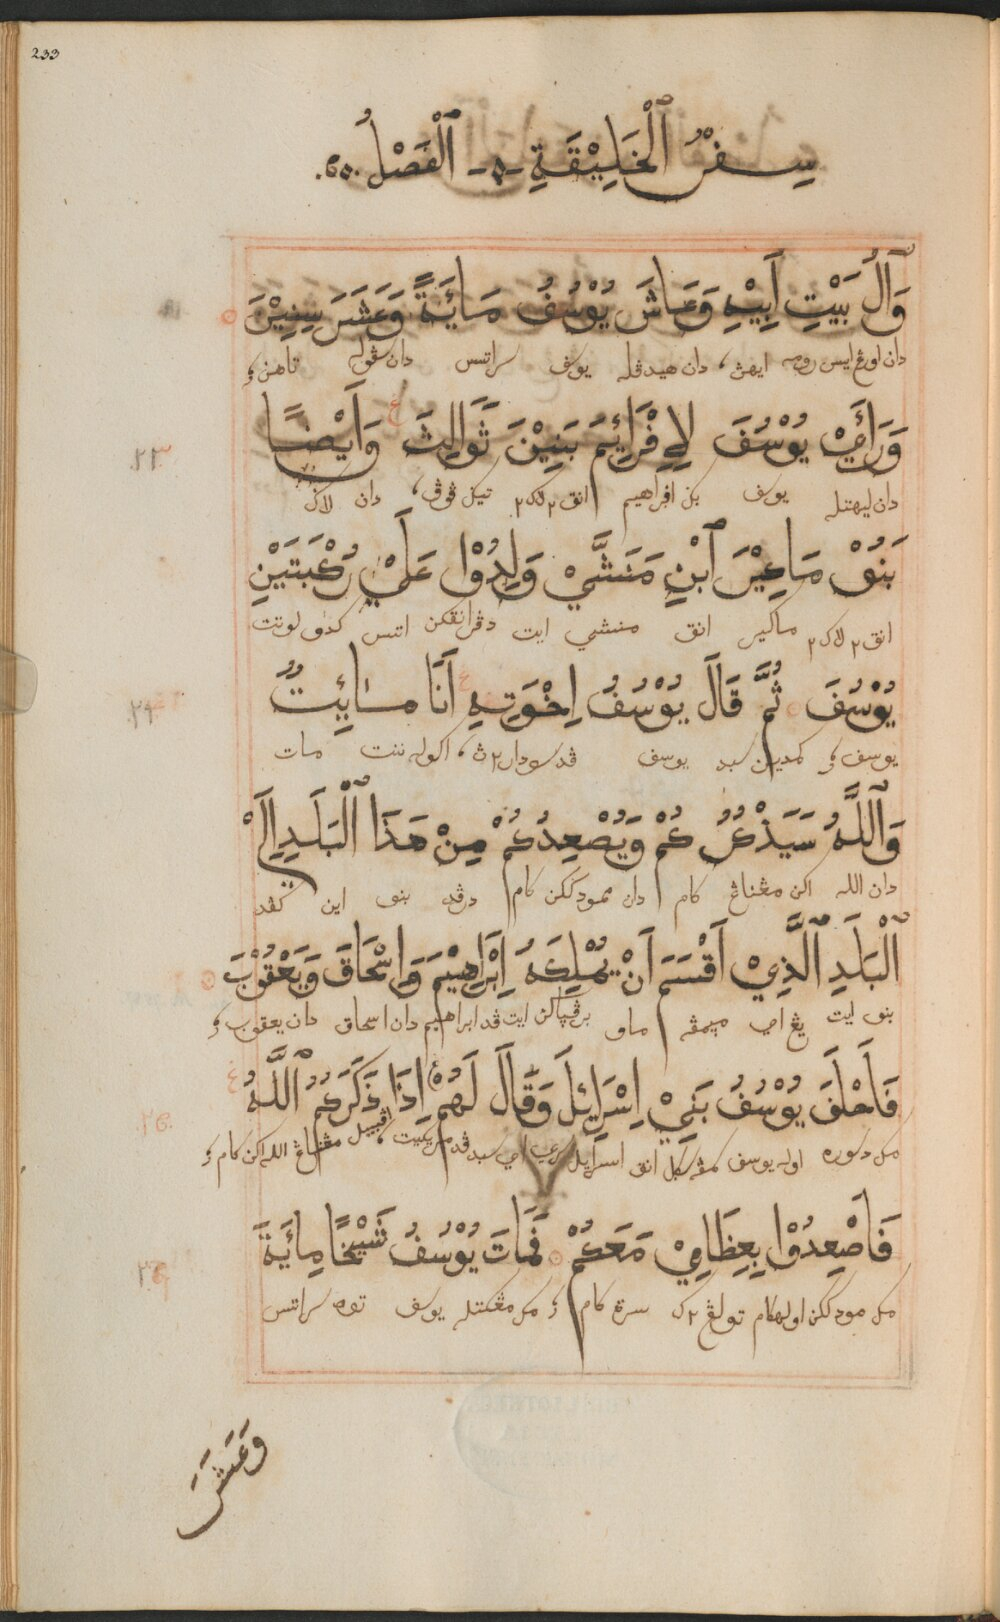 233
سِفْرُ ٱلْخَلِيْقَةِ -٥- ٱلْفَصْلُ .٥٠.
وَآلُ بَيْتِ اَبِيْهِ وَعَاشَ يُوْسُفُ مَايَةً وَعَشَرَ سِنِيْنَ
دان اورڠ ايس رومه ايهن، دان هيدڤله يوسف سراتس دان سڤوله تاهن
وَرَأَيَ يُوْسُفَ لِاِفْرَائِمَ بَنِيْنَ ثَوَالِثَ وَاَيْضًا
٢٣.
دان ليهتله يوسف بݢي افراهيم انق٢ لاک٢ تيݢ ڤوڤ، دان لاݢ
بَنُوْ مَاكِيْرَ ٱبْنِ مَنَشَّيْ وَلِدُوْا عَلَيْ رُكْبَتَيْنِ
انق٢ لاک٢ ماكير انق منشي ايت دڤرانقكن اتس كدو لوتت
يُوْسُفَ ثُمَّ قَالَ يُوْسُفُ اِخْوَتِهِ اَنَا مَائِيتُ
٢٤.
يوسف كمدين سبد يوسف ڤد سودارا٢ث، اكوله ننت مات
وَٱللَّهُ سَيَذْكُرُكُمْ وَيُصْعِدُكُمْ مِنْ هَذَا ٱلْبَلَدِ اِلَيْ
دان الله اكن مڠناڠ كام دان ممودككن كام درڤد بنو اين كڤد
ٱلْبَلَدِ ٱلَّذِيْ اَقْسَمَ اَنْ يُمْلِكَهُ اِبْرَاهِيْمَ وَاِسْحَاقَ وَيَعْقُوْبَ
بنو ايت يڠ اي ميمڤه ماو ايت ڤد ابراهيم دان اسحاق دان يعقوب
فَاَحْلَفَ يُوْسُفُ بَنِيْ اِسْرَائِلَ وَقَالَ لَهُمْ اِذَا ذَكَرَكُمُ ٱللَّهُ
٢٥.
اوله يوسف انق اسرايل اي سبد ڤد مريكيت، اڤبيل مڠناڠ الله اكن كام
فَاَصْعِدُوْا بِعِظَامِيْ مَعَكُمْ فَمَاتَ يُوْسُفُ شَيْخًا مِائَيَةَ
٢٦.
مک مودككن اولهكام تولڠ٢ک سرة كام مک مڠكتله يوسف توه سراتس
وَعَشَرَ